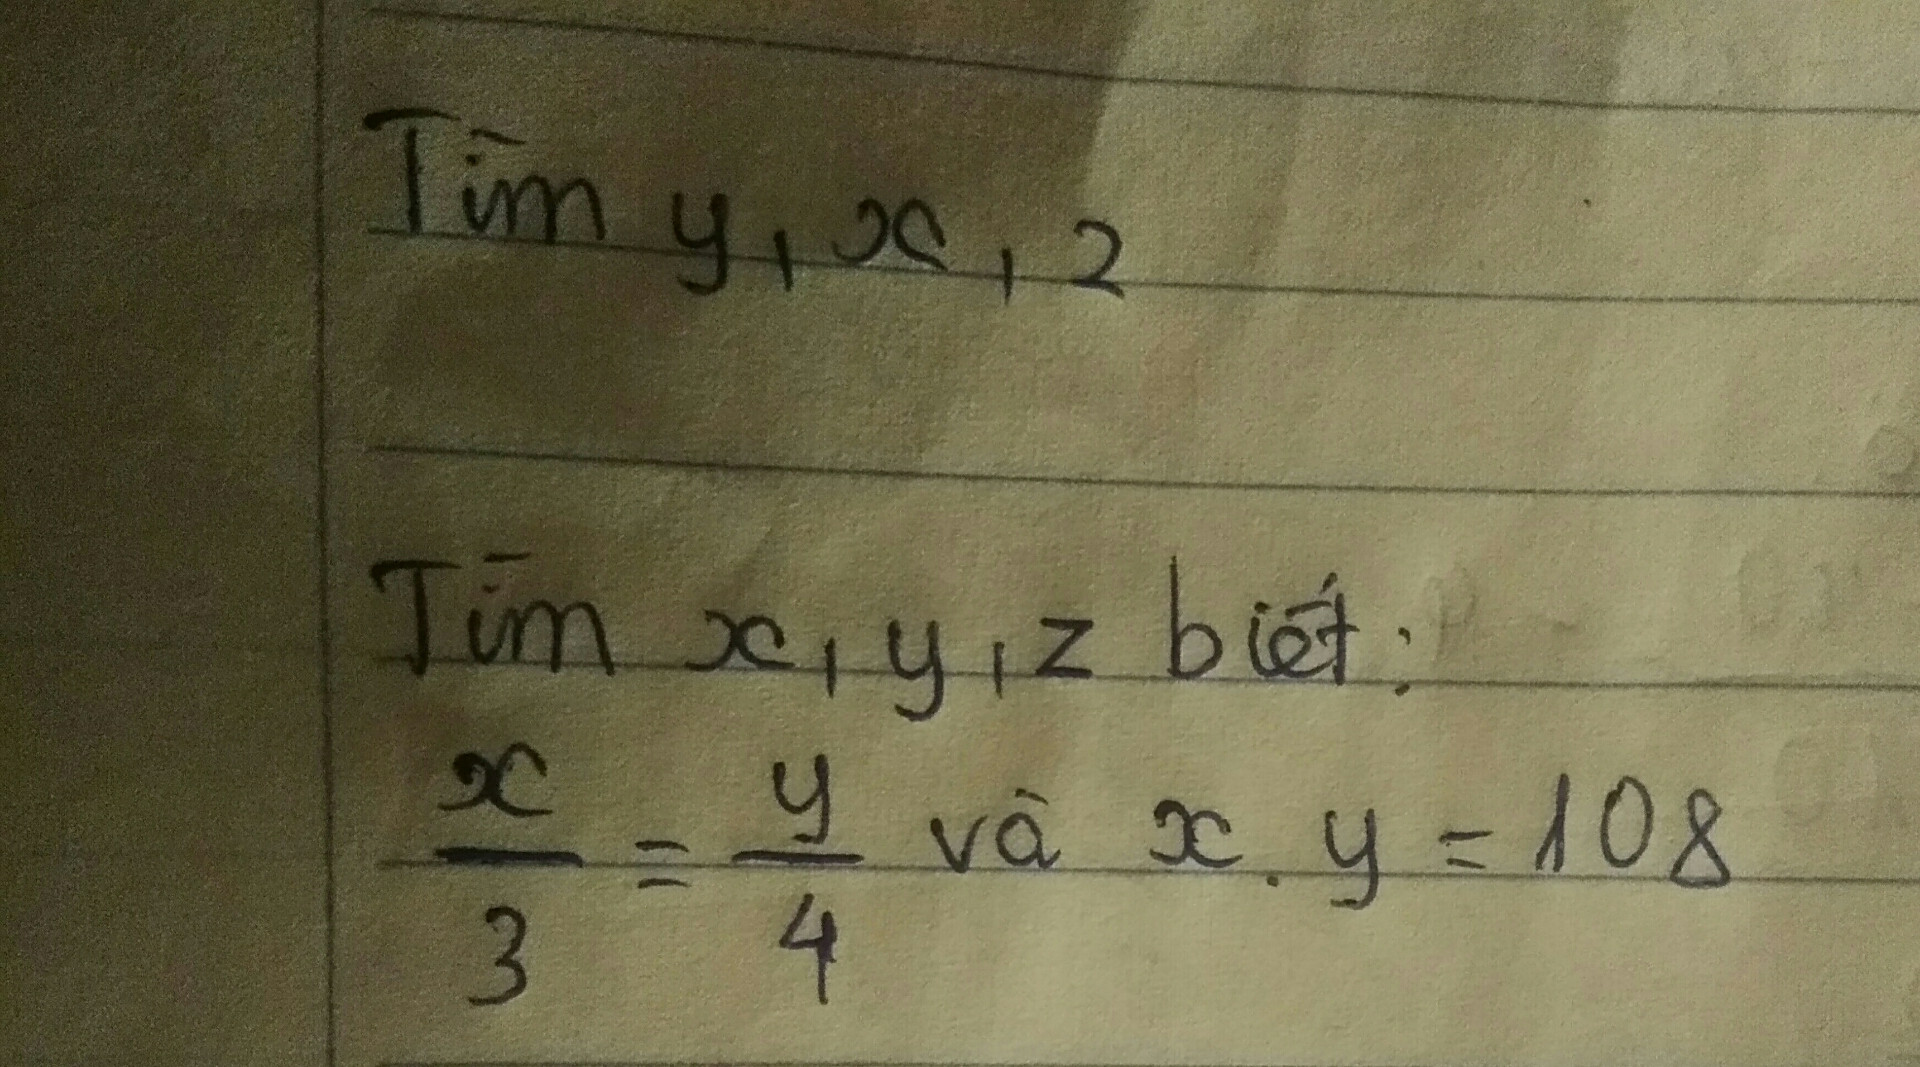 Tìm y, x, z
Tìm x, y, z biết:
x/3 = y/4 và x.y = 108